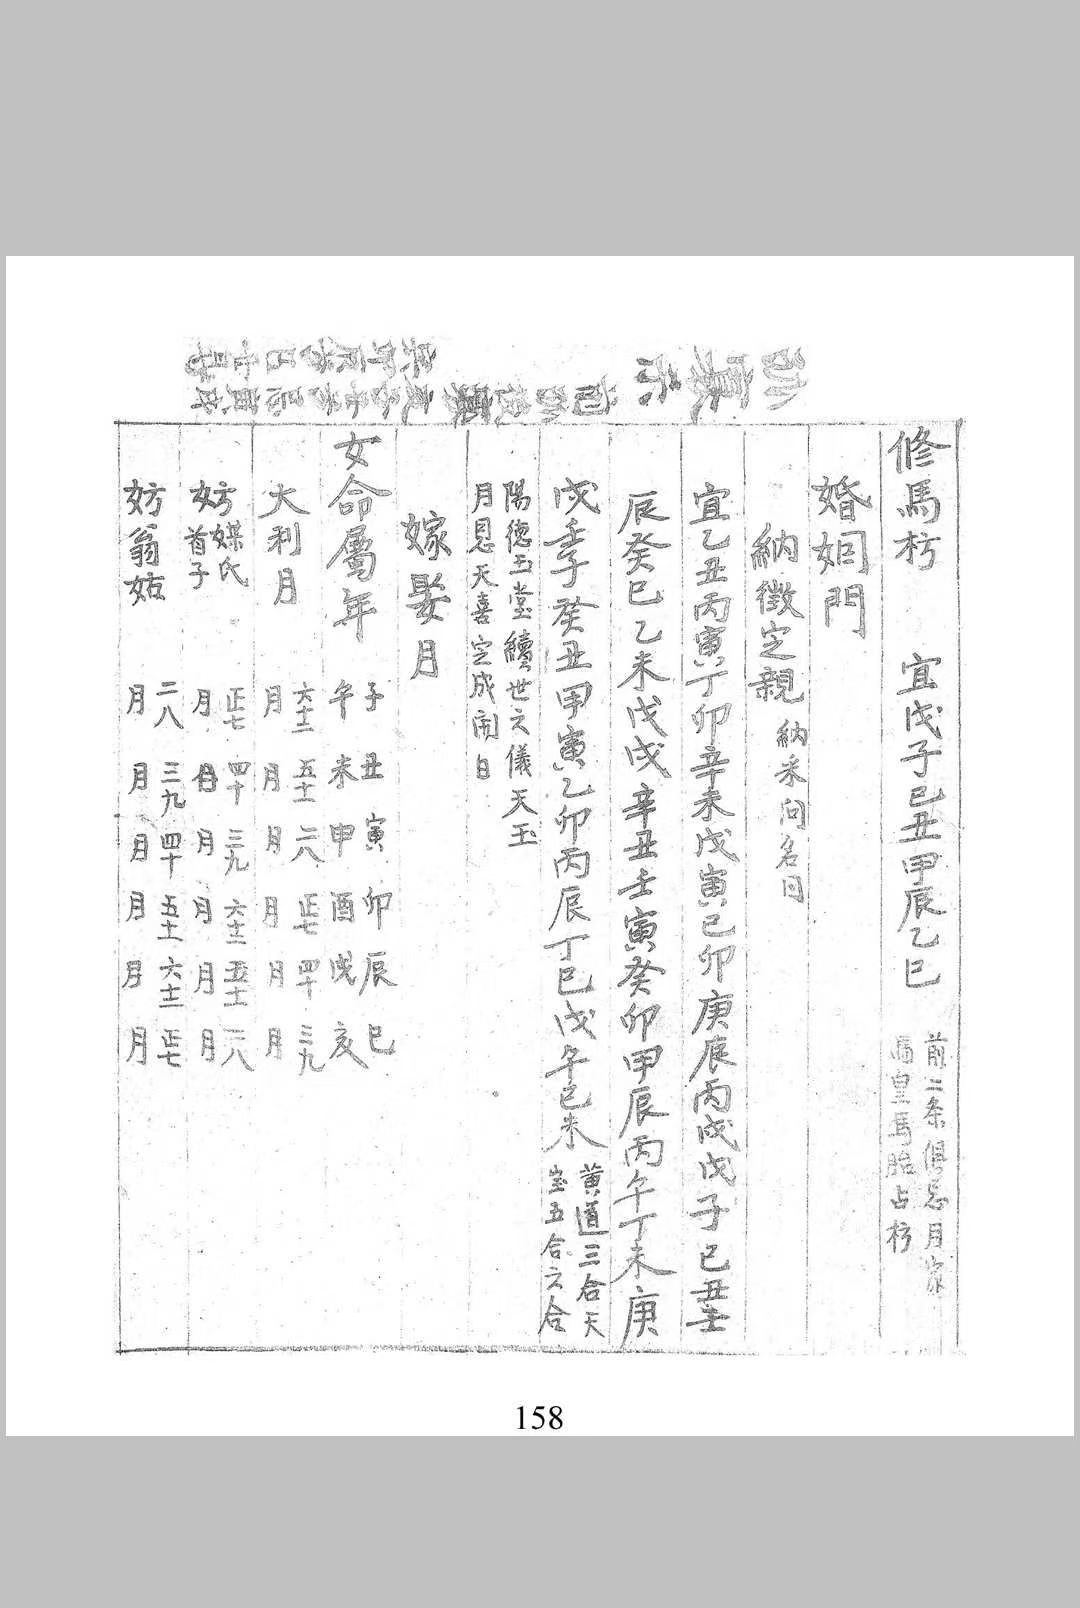 修馬枋　宜戊子己丑甲辰乙巳　前二条俱忌月家
皇馬胎占枋
婚姻門
納徵定親　納采问名同
宜乙丑丙寅丁卯辛未戊寅己卯庚辰丙戌戊子己丑壬
辰癸巳乙未戊戌辛丑壬寅癸卯甲辰丙午丁未庚
戌壬子癸丑甲寅乙卯丙辰丁巳戊午己未　黄道三合天
宝五合六合
陽德玉堂續世六儀天玉
月恩天喜定成開日
嫁娶月
女命屬年　子午　丑未　寅申　卯酉　辰戌　巳亥
大利月　六十二月　五十一月　二八月　正七月　四十月　三九月
妨媒氏首子　正七月　四十月　三九月　六十二月　五十一月　二八月
妨翁姑　二八月　三九月　四十月　五十一月　六十二月　正七月
158